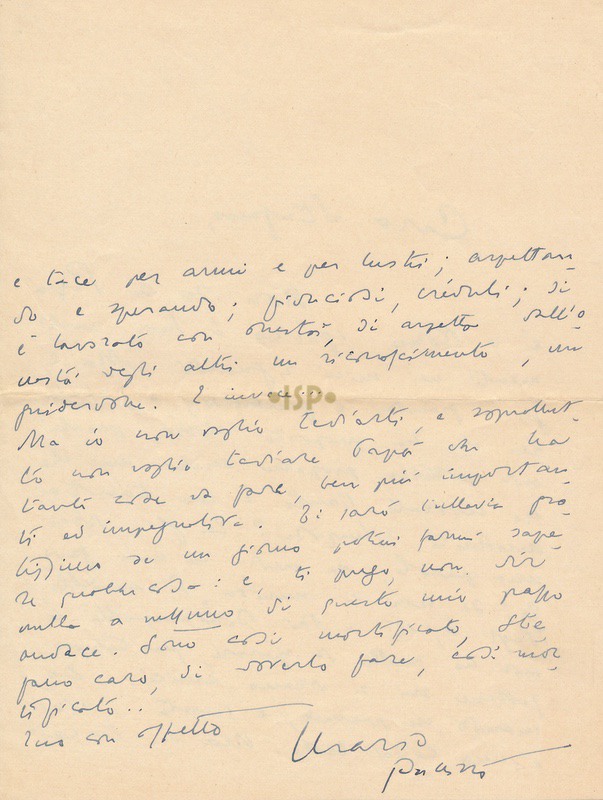 e tace per anni e per lustri; aspettan-
do e sperando; fiduciosi, creduli; si
è lavorato con onestà, si aspetta dall'o
nestà degli altri un riconoscimento, un
guiderdone. E invece...
•ISP•
Ma io non voglio tediarti, e soprattut-
to non voglio tediare Papà che ha
tante cose da fare, ben più importan-
ti ed impegnative. Ti sarò tuttavia gra-
tissimo se un giorno potrai farmi sape-
re qualche cosa: e, ti prego, non dir
nulla a nessuno di questo mio passo
audace. Sono così mortificato, Ste
fano caro, di doverlo fare, così mor-
tificato..
Tuo con affetto